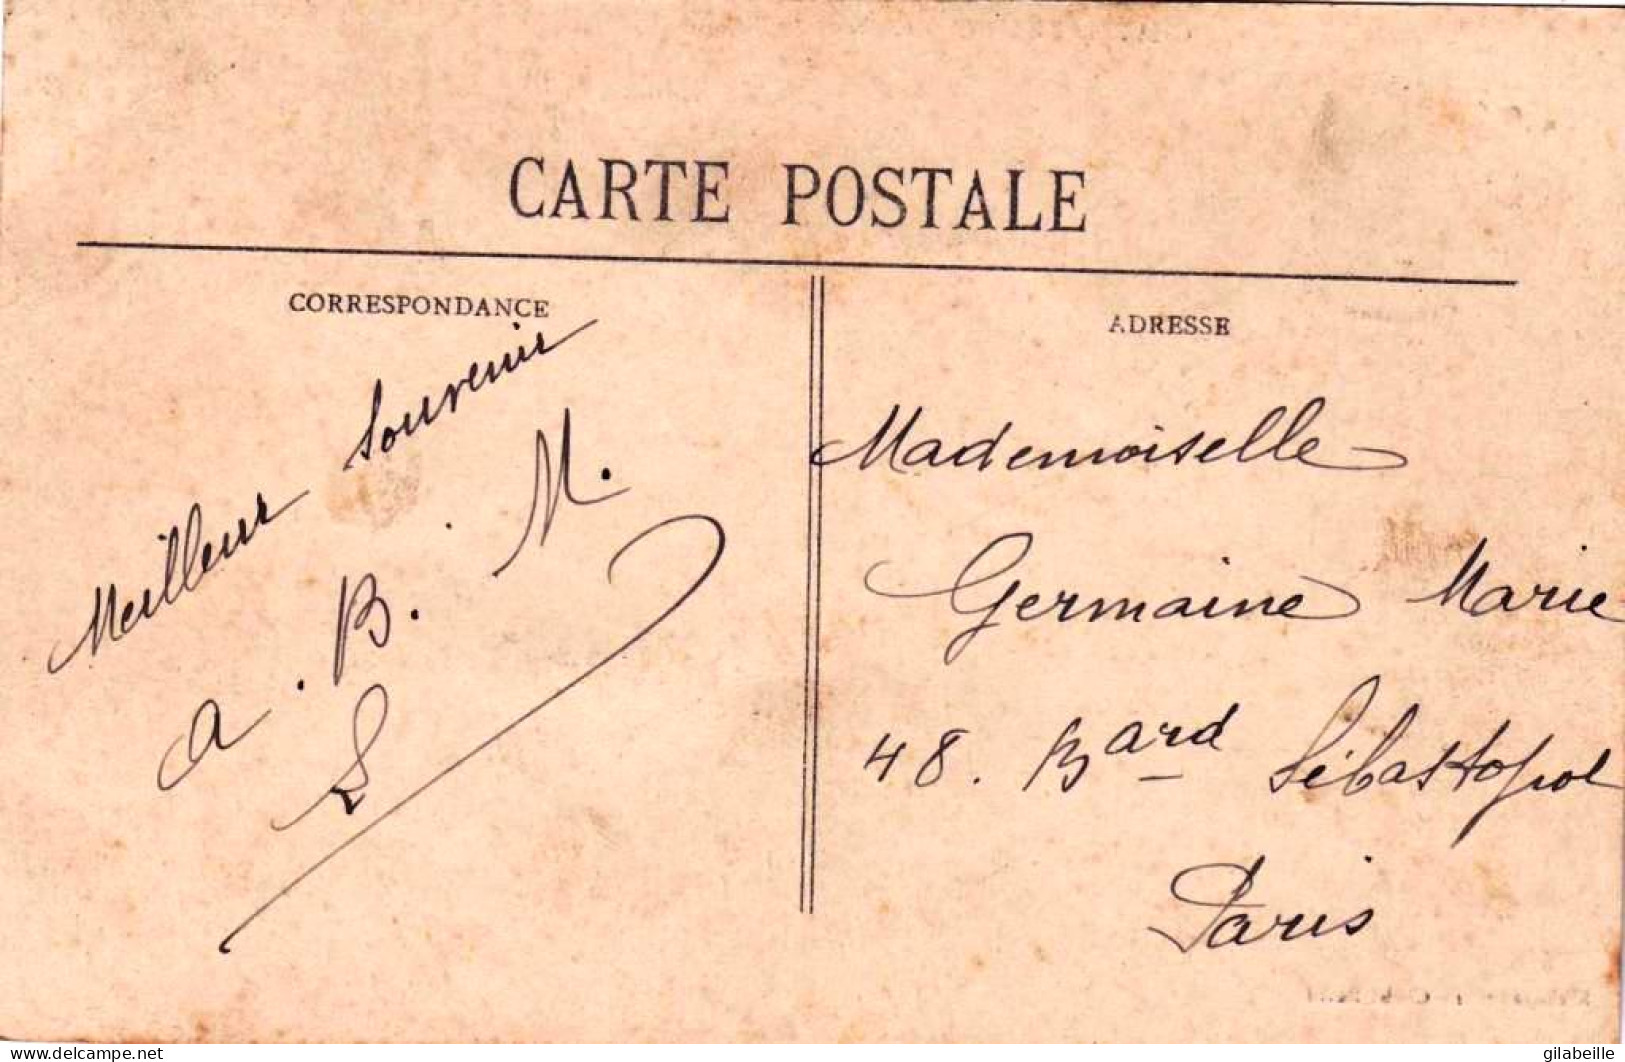 CARTE POSTALE
CORRESPONDANCE
Meilleur Souvenir
a. B. M.
ADRESSE
Mademoiselle
Germaine Marie
48. Bard Sébastopol
Paris
delcampe.net
gilabeille